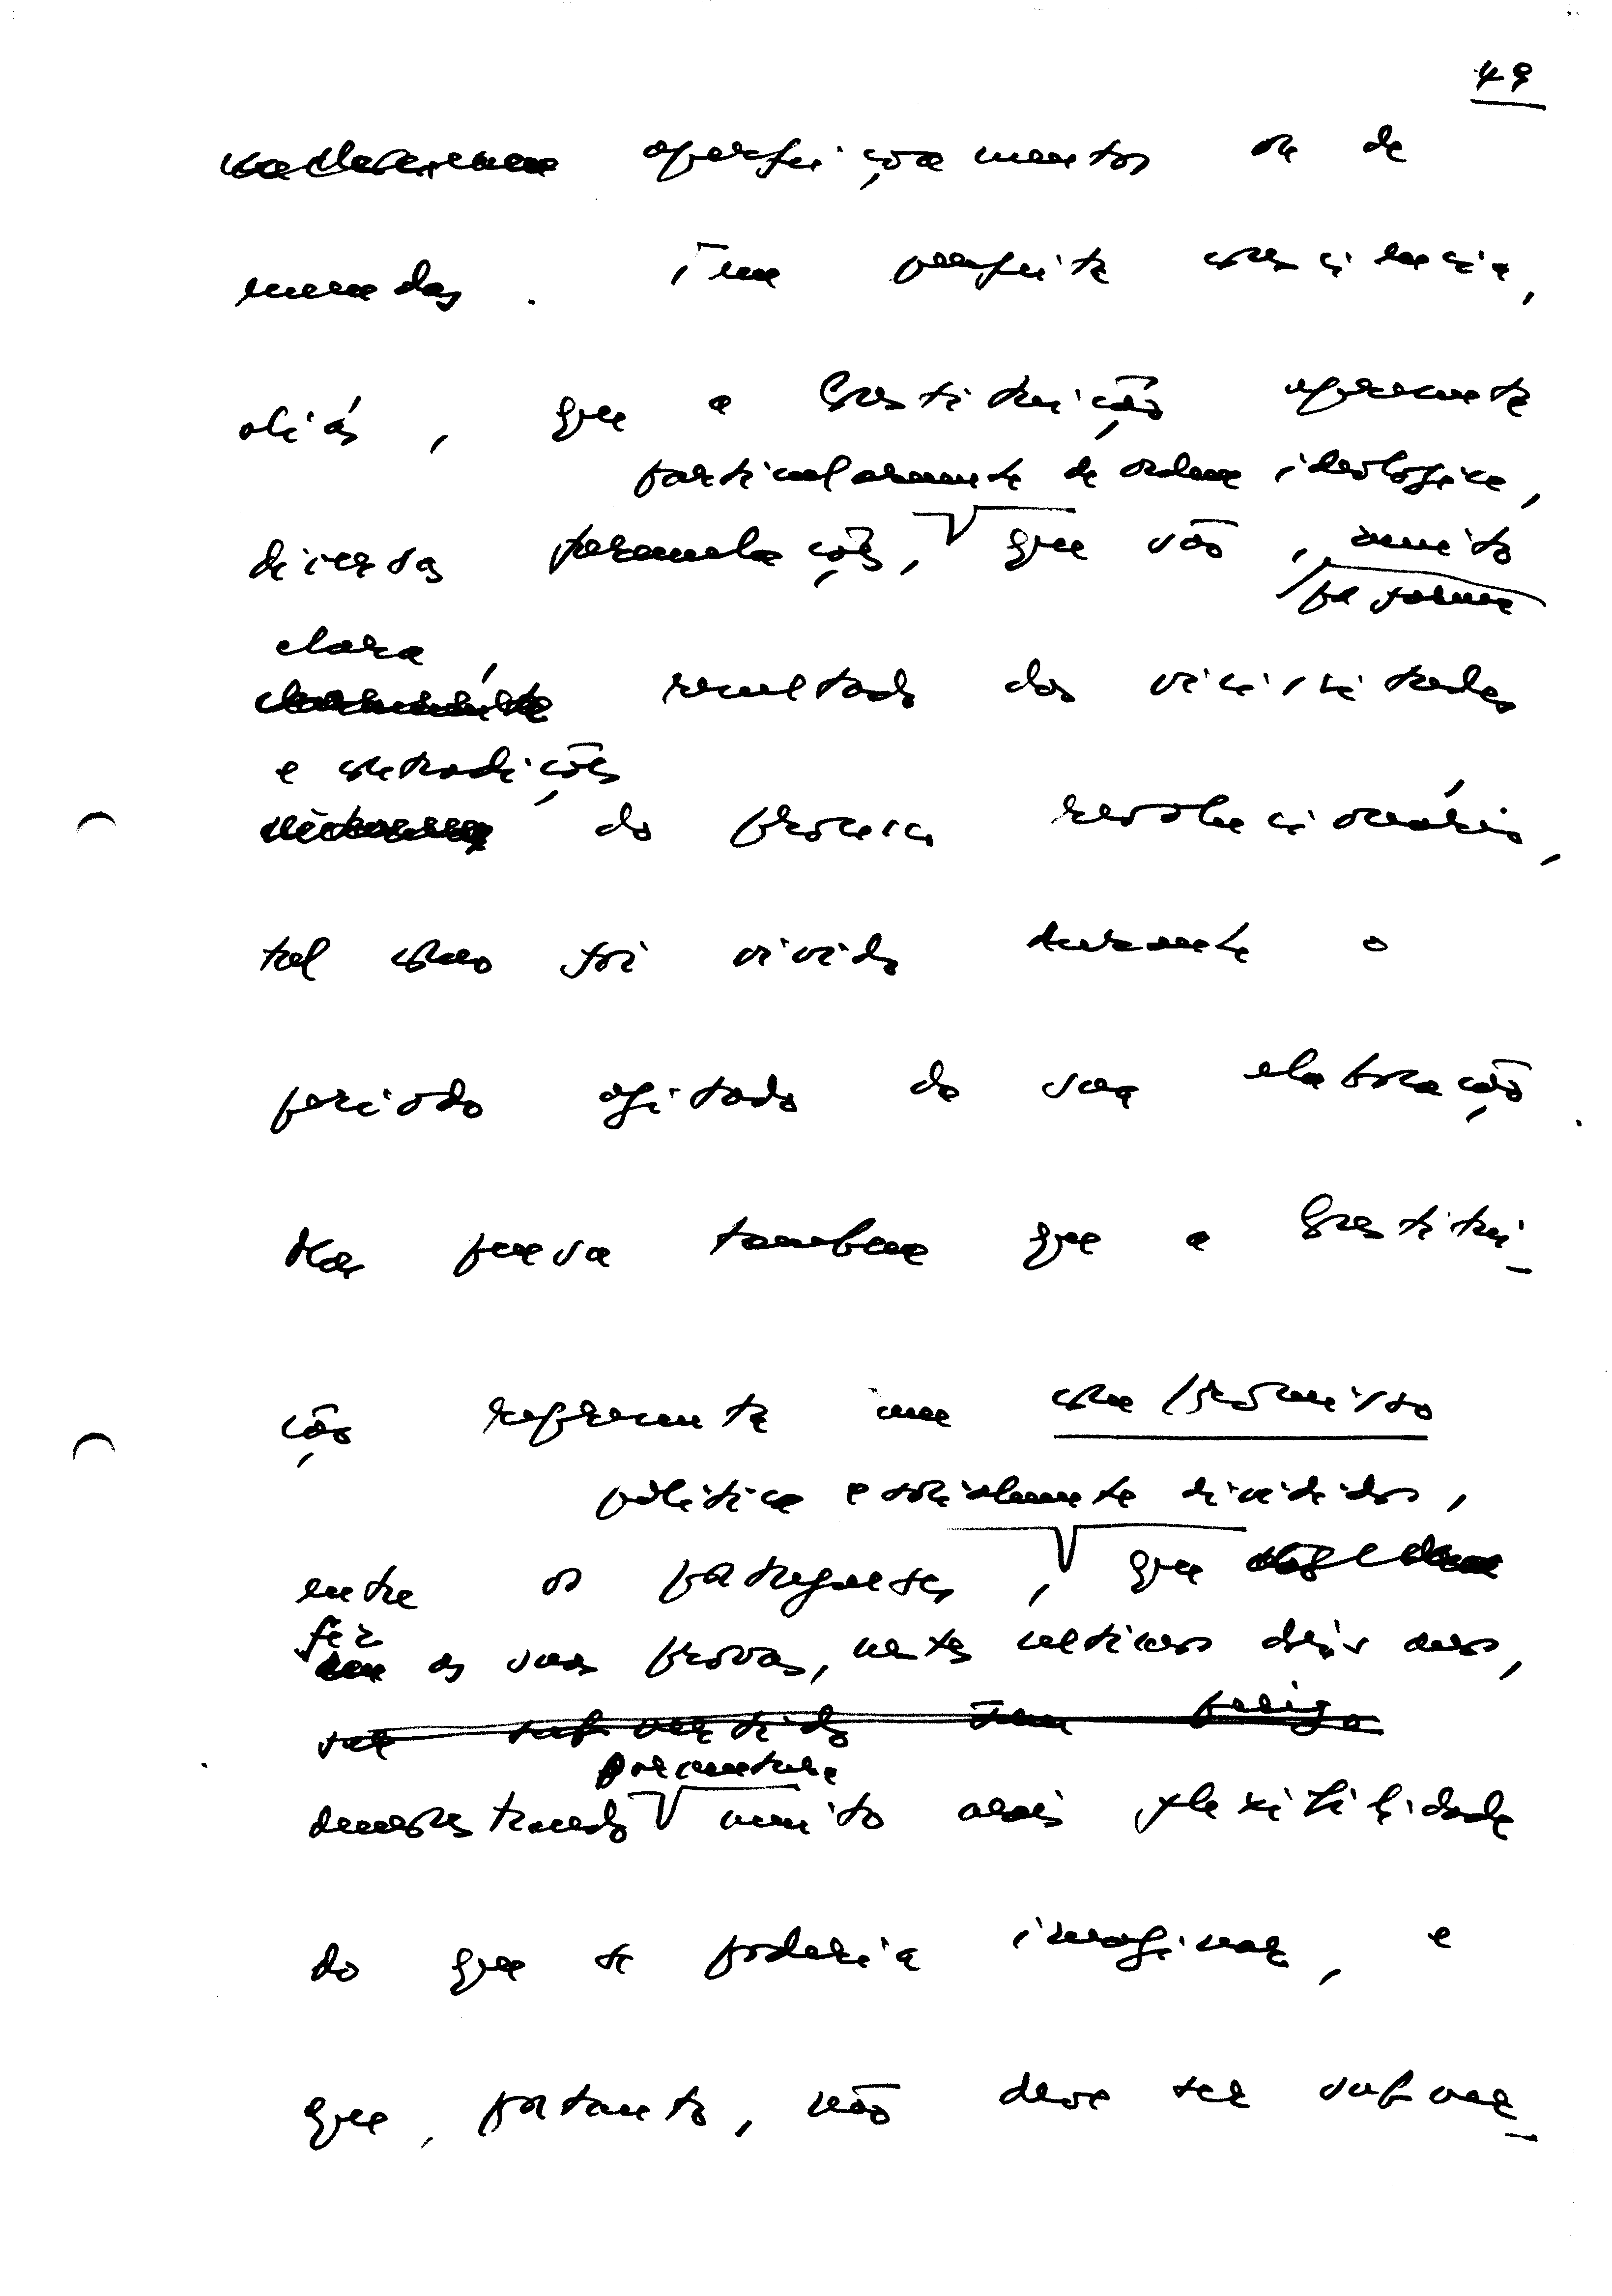 49
aperfeiçoamentos ou de
emendas. Tem perfeita consciência,
aliás, que a Constituição apresenta
particularmente de ordem ideológica,
diversas formulações, que são, muito
por forma
clara,
resultado das vicissitudes
e contradições
do processo revolucionário,
tal como foi vivido durante o
período agitado da sua elaboração.
Mas pensa também que a Constitui-
ção representa um compromisso
política e socialmente divididos,
entre os portugueses, que
fez as suas provas, nestes últimos dois anos,
ser subvertido sem perigo
porventura
demonstrando muito mais flexibilidade
do que se poderia imaginar, e
que, portanto, não deve ser subver-